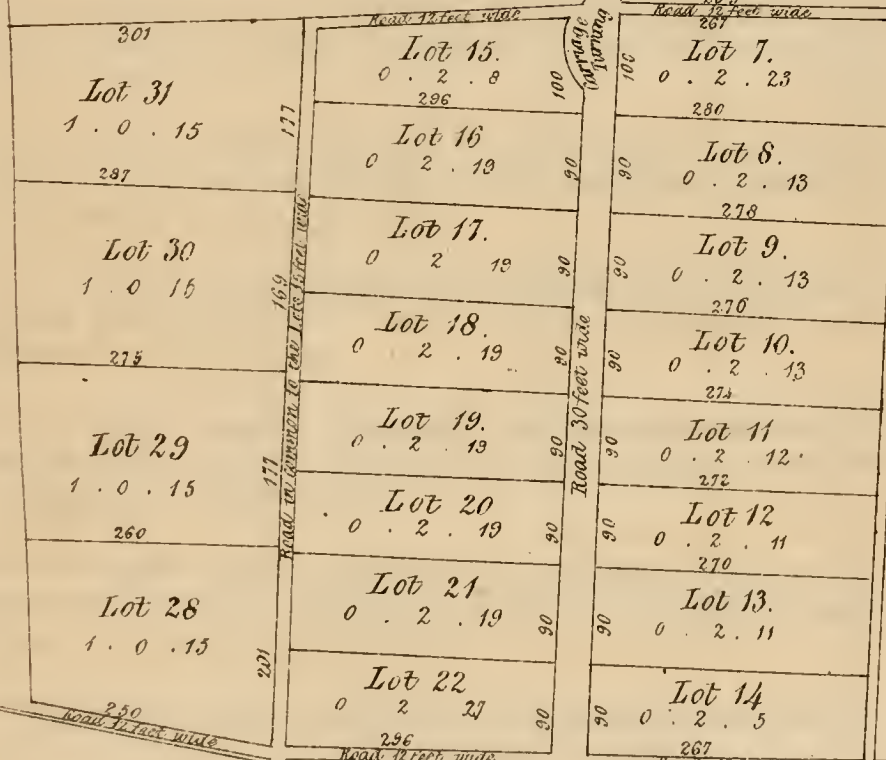 Road 12 feet wide
301
Lot 31
1 . 0 . 15
177
287
Lot 30
1 . 0 15
169
275
Lot 29
1 . 0 . 15
177
260
Lot 28
1 . 0 . 15
201
250
Road 12 feet wide
Road in common to the Lots 15 feet wide
Lot 15.
0 . 2 . 8
100
296
Lot 16
0 2 . 19
90
Lot 17.
0 2 19
90
Lot 18.
0 2 . 19
90
Lot 19.
0 . 2 . 19
90
Lot 20
0 . 2 . 19
90
Lot 21
0 . 2 . 19
90
Lot 22
0 2 27
90
296
Road 12 feet wide
Carriage
Turning
Road 30 feet wide
Road 12 feet wide
267
Lot 7.
0 . 2 . 23
100
280
Lot 8.
0 . 2 . 13
90
278
Lot 9.
0 . 2 . 13
90
276
Lot 10.
0 . 2 . 13
90
Lot 11
0 . 2 . 12
90
272
Lot 12
0 . 2 . 11
90
270
Lot 13.
0 . 2 . 11
90
Lot 14
0 . 2 . 5
90
267